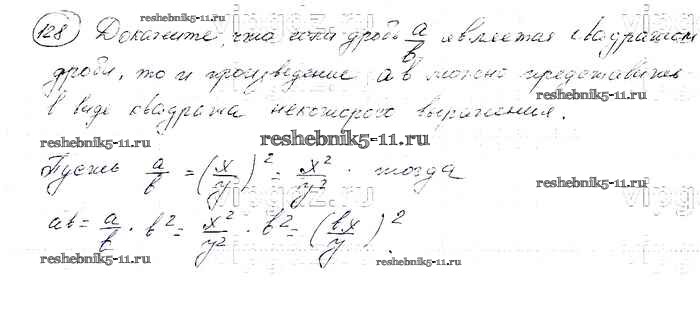 reshebnik5-11.ru
128 Докажите, что если дробь a/b является квадратом
дроби, то и произведение ab можно представить
в виде квадрата некоторого выражения.
reshebnik5-11.ru reshebnik5-11.ru reshebnik5-11.ru
Пусть a/b = (x/y)² = x²/y². тогда
reshebnik5-11.ru
ab = a/b · b² = x²/y² · b² = (bx/y)².
reshebnik5-11.ru reshebnik5-11.ru reshebnik5-11.ru
reshebnik5-11.ru